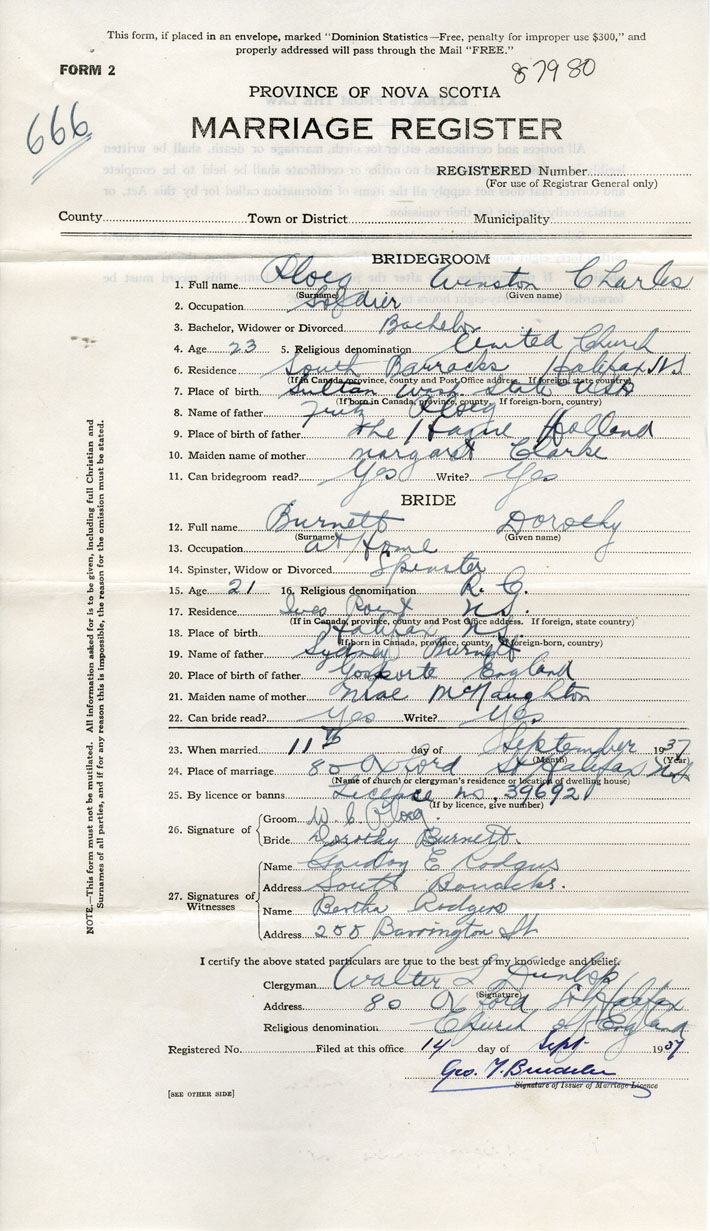 This form, if placed in an envelope, marked "Dominion Statistics—Free, penalty for improper use $300," and
properly addressed will pass through the Mail "FREE."
FORM 2
87980
PROVINCE OF NOVA SCOTIA
666
MARRIAGE REGISTER
REGISTERED Number
(For use of Registrar General only)
County Town or District Municipality
BRIDEGROOM
1. Full name Ploeg Winston Charles
(Surname) (Given name)
2. Occupation Soldier
3. Bachelor, Widower or Divorced Bachelor
4. Age 23 5. Religious denomination United Church
6. Residence South Barracks Halifax N.S
(If in Canada, province, county and Post Office address. If foreign, state country)
7. Place of birth Sultan Wash State USA
(If born in Canada, province, county. If foreign-born, country)
8. Name of father Fritz Ploeg
9. Place of birth of father The Hague Holland
10. Maiden name of mother Margaret Clarke
11. Can bridegroom read? Yes Write? Yes
BRIDE
12. Full name Burnett Dorothy
(Surname) (Given name)
13. Occupation at Home
14. Spinster, Widow or Divorced Spinster
15. Age 21 16. Religious denomination R. C.
17. Residence Ives Point N.S.
(If in Canada, province, county and Post Office address. If foreign, state country)
18. Place of birth Halifax N.S.
(If born in Canada, province, county. If foreign-born, country)
19. Name of father Sydney Burnett
20. Place of birth of father Gosporte England
21. Maiden name of mother Mae McNaughton
22. Can bride read? Yes Write? Yes
23. When married 11th day of September 1937
(Month) (Year)
24. Place of marriage 80 Oxford St Halifax
(Name of church or clergyman's residence or location of dwelling house)
25. By licence or banns Licence no. 396921
(If by licence, give number)
26. Signature of
Groom W. C. Ploeg.
Bride Dorothy Burnett.
27. Signatures of Witnesses
Name Gordon E Rodgers
Address South Barracks.
Name Bertha Rodgers
Address Barrington St
I certify the above stated particulars are true to the best of my knowledge and belief.
Clergyman Walter L Dunlop
(Signature)
Address 80 Oxford St Halifax
Religious denomination Church of England
Registered No. Filed at this office 14 day of Sept 1937
Geo. T.
Signature of Issuer of Marriage Licence
[SEE OTHER SIDE]
NOTE.—This form must not be mutilated. All information asked for is to be given, including full Christian and
Surnames of all parties, and if for any reason this is impossible, the reason for the omission must be stated.